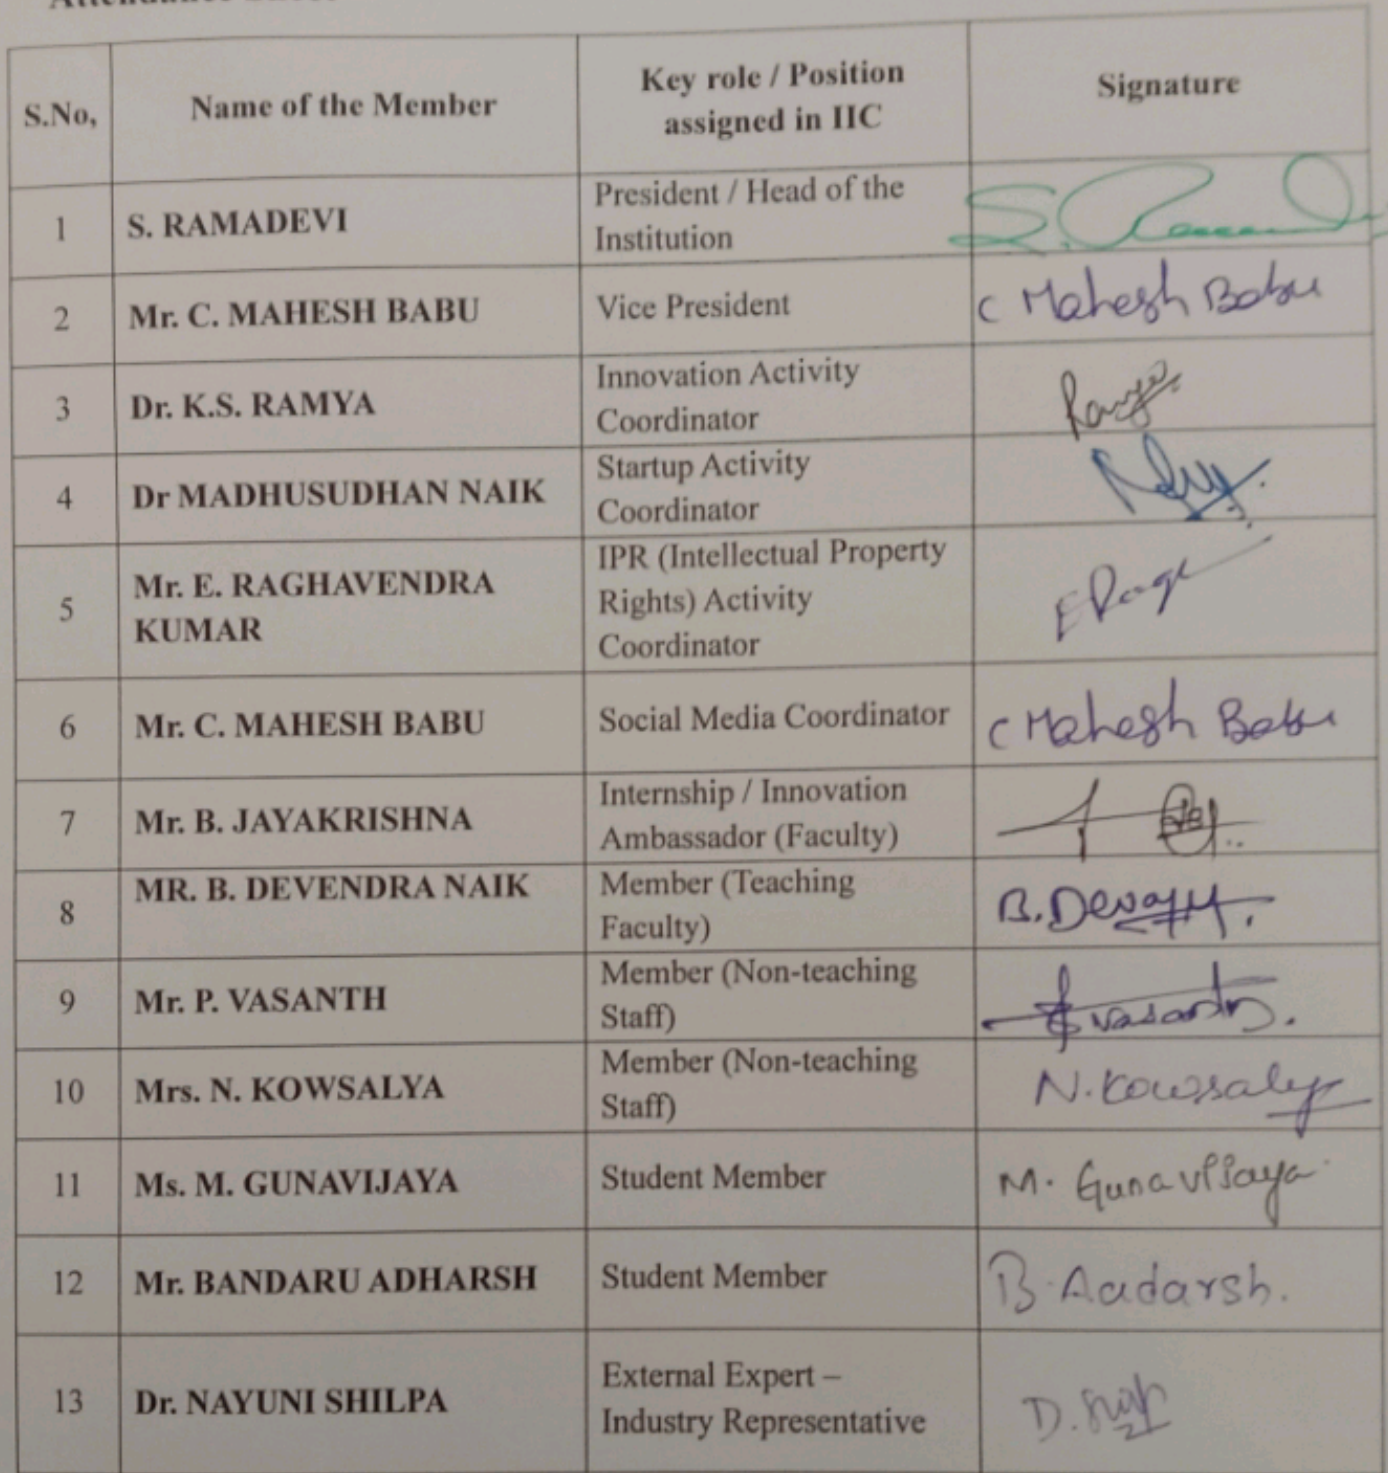 S.No,
Name of the Member
Key role / Position
assigned in IIC
Signature
1
S. RAMADEVI
President / Head of the
Institution
2
Mr. C. MAHESH BABU
Vice President
C Mahesh Babu
3
Dr. K.S. RAMYA
Innovation Activity
Coordinator
Ramya
4
Dr MADHUSUDHAN NAIK
Startup Activity
Coordinator
5
Mr. E. RAGHAVENDRA
KUMAR
IPR (Intellectual Property
Rights) Activity
Coordinator
6
Mr. C. MAHESH BABU
Social Media Coordinator
C Mahesh Babu
7
Mr. B. JAYAKRISHNA
Internship / Innovation
Ambassador (Faculty)
8
MR. B. DEVENDRA NAIK
Member (Teaching
Faculty)
9
Mr. P. VASANTH
Member (Non-teaching
Staff)
Vasanth.
10
Mrs. N. KOWSALYA
Member (Non-teaching
Staff)
N. Kowsalya
11
Ms. M. GUNAVIJAYA
Student Member
M. Gunavijaya
12
Mr. BANDARU ADHARSH
Student Member
B. Aadarsh.
13
Dr. NAYUNI SHILPA
External Expert –
Industry Representative